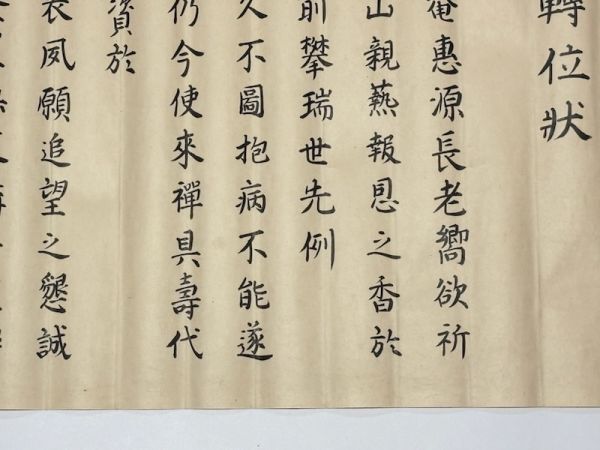 轉位狀
菴惠源長老嚮欲祈
山親爇報恩之香於
前攀瑞世先例
久不圖抱病不能遂
仍今使來禪具壽代
資於
衣夙願追望之懇誠